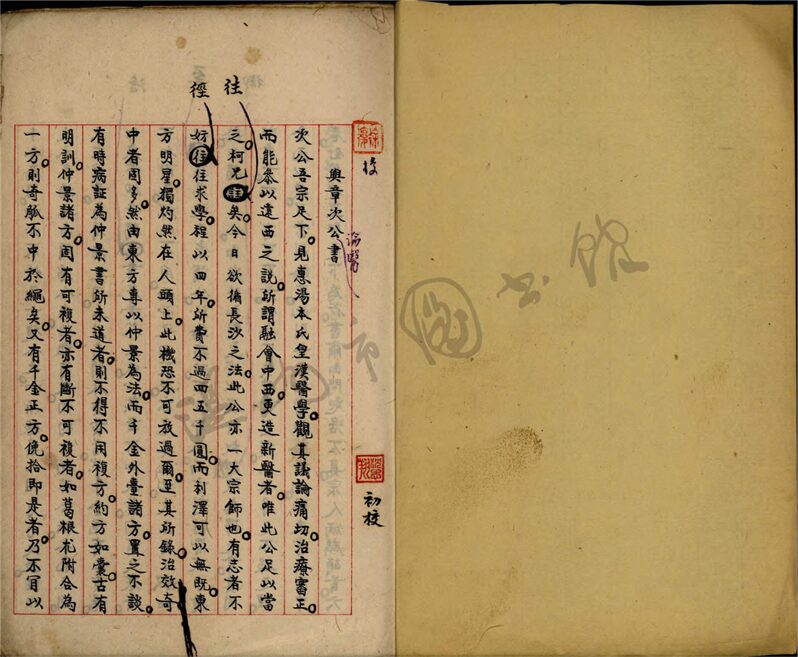 往
徑
校
初校
論醫
與章次公書
次公吾宗足下。見惠湯本氏皇漢醫學。觀其議論痛切。治療審正。
而能參以遠西之說。所謂融會中西。更造新醫者。唯此公足以當
之。柯尤矣。今日欲循長沙之法。此公亦一大宗師也。有志者不
妨往求學。程以四年。所費不過四五千圓。而利澤可以無既。東
方明星。獨灼然在人頭上。此機恐不可放過爾。至其所錄治效。奇
中者固多。然由東方專以仲景為法。而千金外臺諸方。置之不談。
有時病証為仲景書所未道者。則不得不用複方。約方如囊。古有
明訓。仲景諸方。固有可複者。亦有斷不可複者。如葛根朮附合為
一方。則奇觚不中於繩矣。又有千金正方。俛拾即是者。乃不肎以